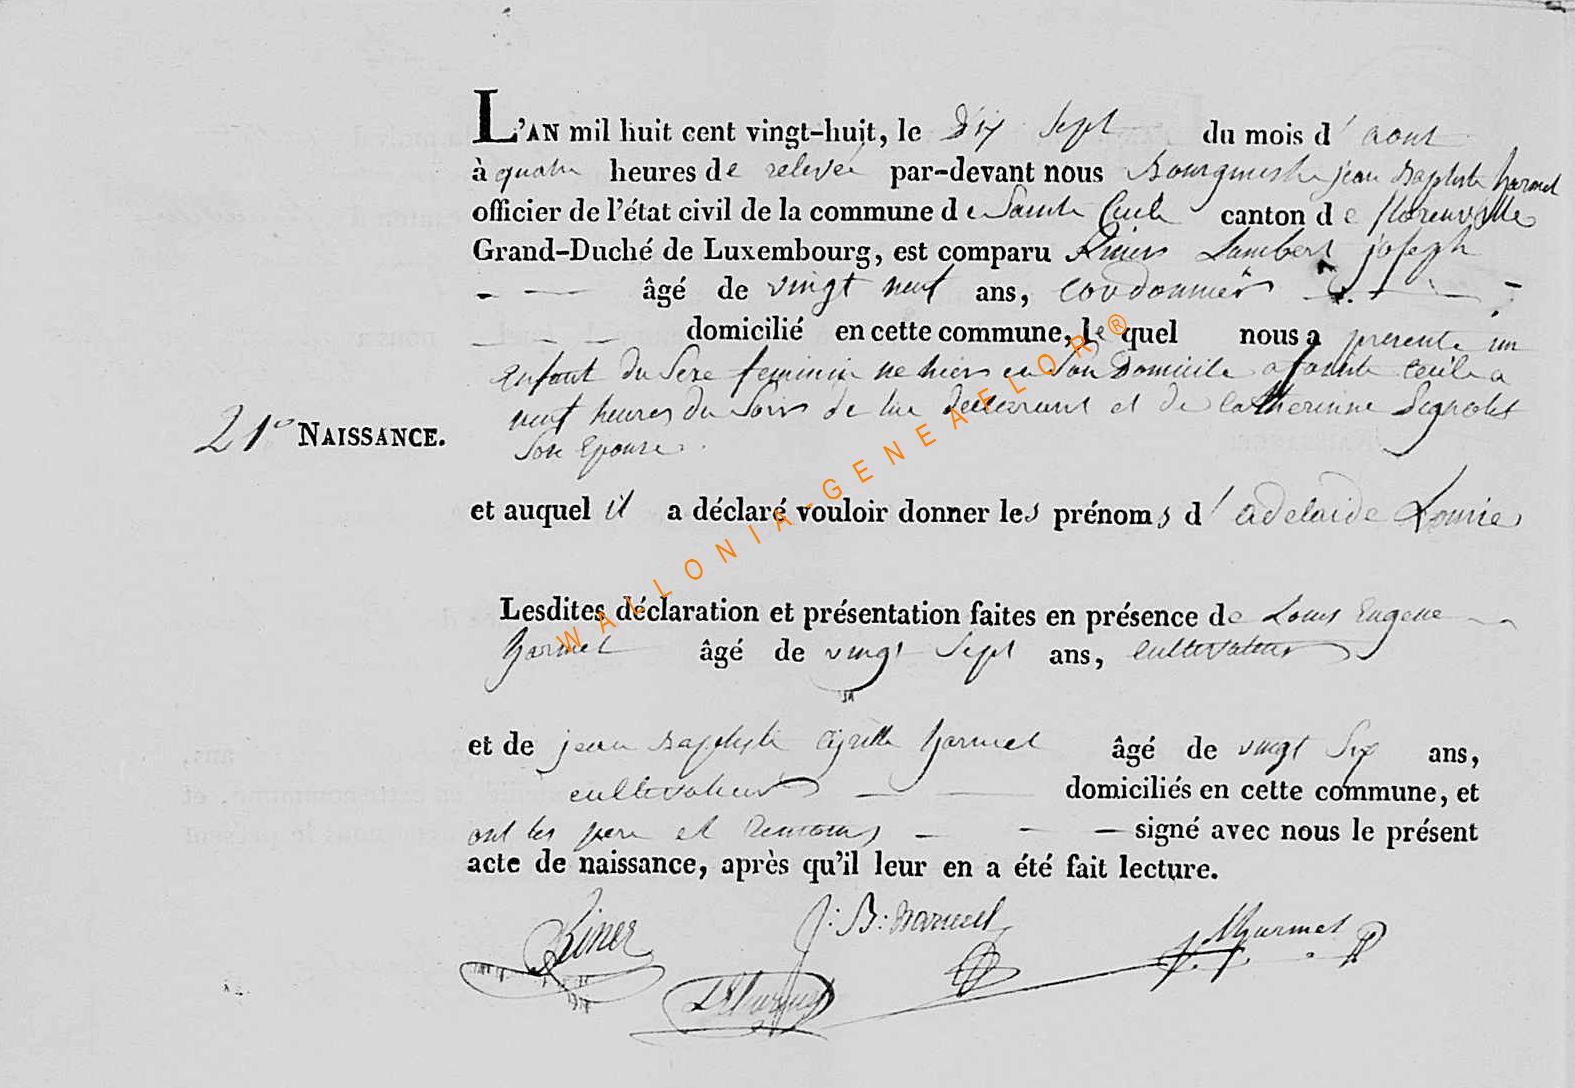 L'AN mil huit cent vingt-huit, le Dix Sept du mois d'aout
à quatre heures de relevée par-devant nous Bourgmestre jean Baptiste harmel
officier de l'état civil de la commune de Sainte Cecile canton de florenville
Grand-Duché de Luxembourg, est comparu Lambert joseph
âgé de vingt neuf ans, cordonnier
domicilié en cette commune, lequel nous a presenté un
enfant du Sexe feminin né hier en Son Domicile a Sainte Cecile a
neuf heures du Soir de lui declarant et de catherinne
21e NAISSANCE.
Son Epouse
et auquel il a déclaré vouloir donner les prénoms d'adelaide Louise
Lesdites déclaration et présentation faites en présence de Louis Eugene
harmel âgé de vingt Sept ans, cultivateur
et de jean Baptiste Cyrille harmel âgé de vingt Six ans,
cultivateur domiciliés en cette commune, et
ont les pere et temoins signé avec nous le présent
acte de naissance, après qu'il leur en a été fait lecture.
J: B: harmel
WALLONIA-GENEAFLOR®